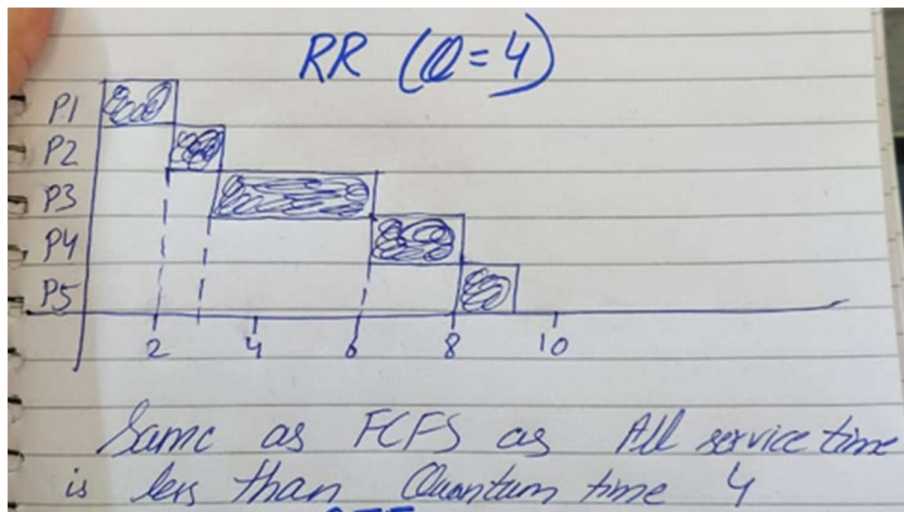 RR (Q=4)
P1
P2
P3
P4
P5
2 4 6 8 10
Same as FCFS as All service time
is less than Quantum time 4